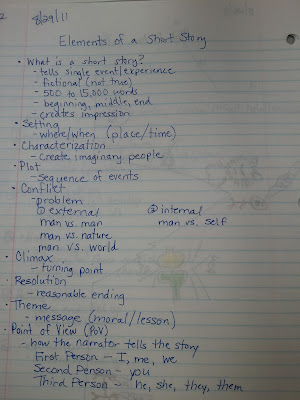 8/29/11
Elements of a Short Story
• What is a short story?
- tells single event/experience
- fictional (not true)
- 500 to 15,000 words
- beginning, middle, end
- creates impression
• Setting
- where/when (place/time)
• Characterization
- Create imaginary people
• Plot
- Sequence of events
• Conflict
- problem
① external ② internal
man vs. man man vs. self
man vs. nature
man vs. world
• Climax
- turning point
• Resolution
- reasonable ending
• Theme
- message (moral/lesson)
• Point of View (PoV)
- how the narrator tells the story
First Person - I, me, we
Second Person - you
Third Person - he, she, they, them